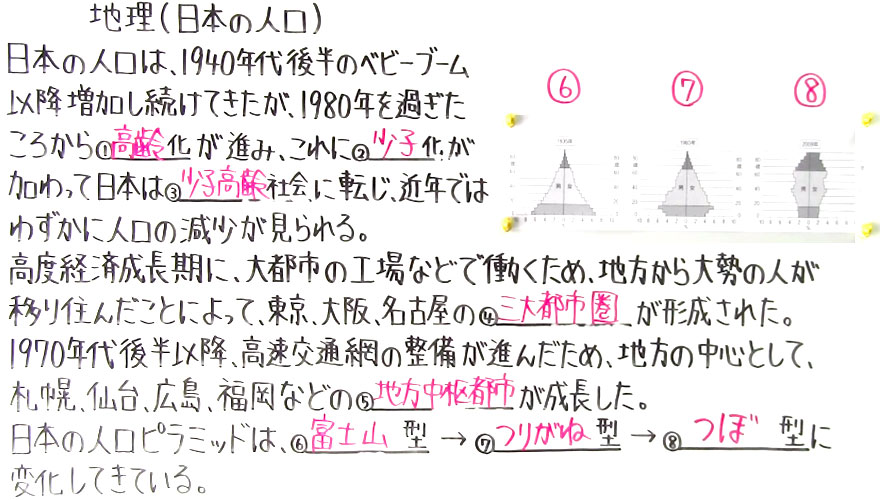 地理(日本の人口)
日本の人口は、1940年代後半のベビーブーム
以降増加し続けてきたが、1980年を過ぎた
ころから①高齢化が進み、これに②少子化が
加わって日本は③少子高齢社会に転じ、近年では
わずかに人口の減少が見られる。
⑥ ⑦ ⑧
男 女
男 女
男 女
高度経済成長期に、大都市の工場などで働くため、地方から大勢の人が
移り住んだことによって、東京、大阪、名古屋の④三大都市圏が形成された。
1970年代後半以降、高速交通網の整備が進んだため、地方の中心として、
札幌、仙台、広島、福岡などの⑤地方中枢都市が成長した。
日本の人口ピラミッドは、⑥富士山型→⑦つりがね型→⑧つぼ型に
変化してきている。